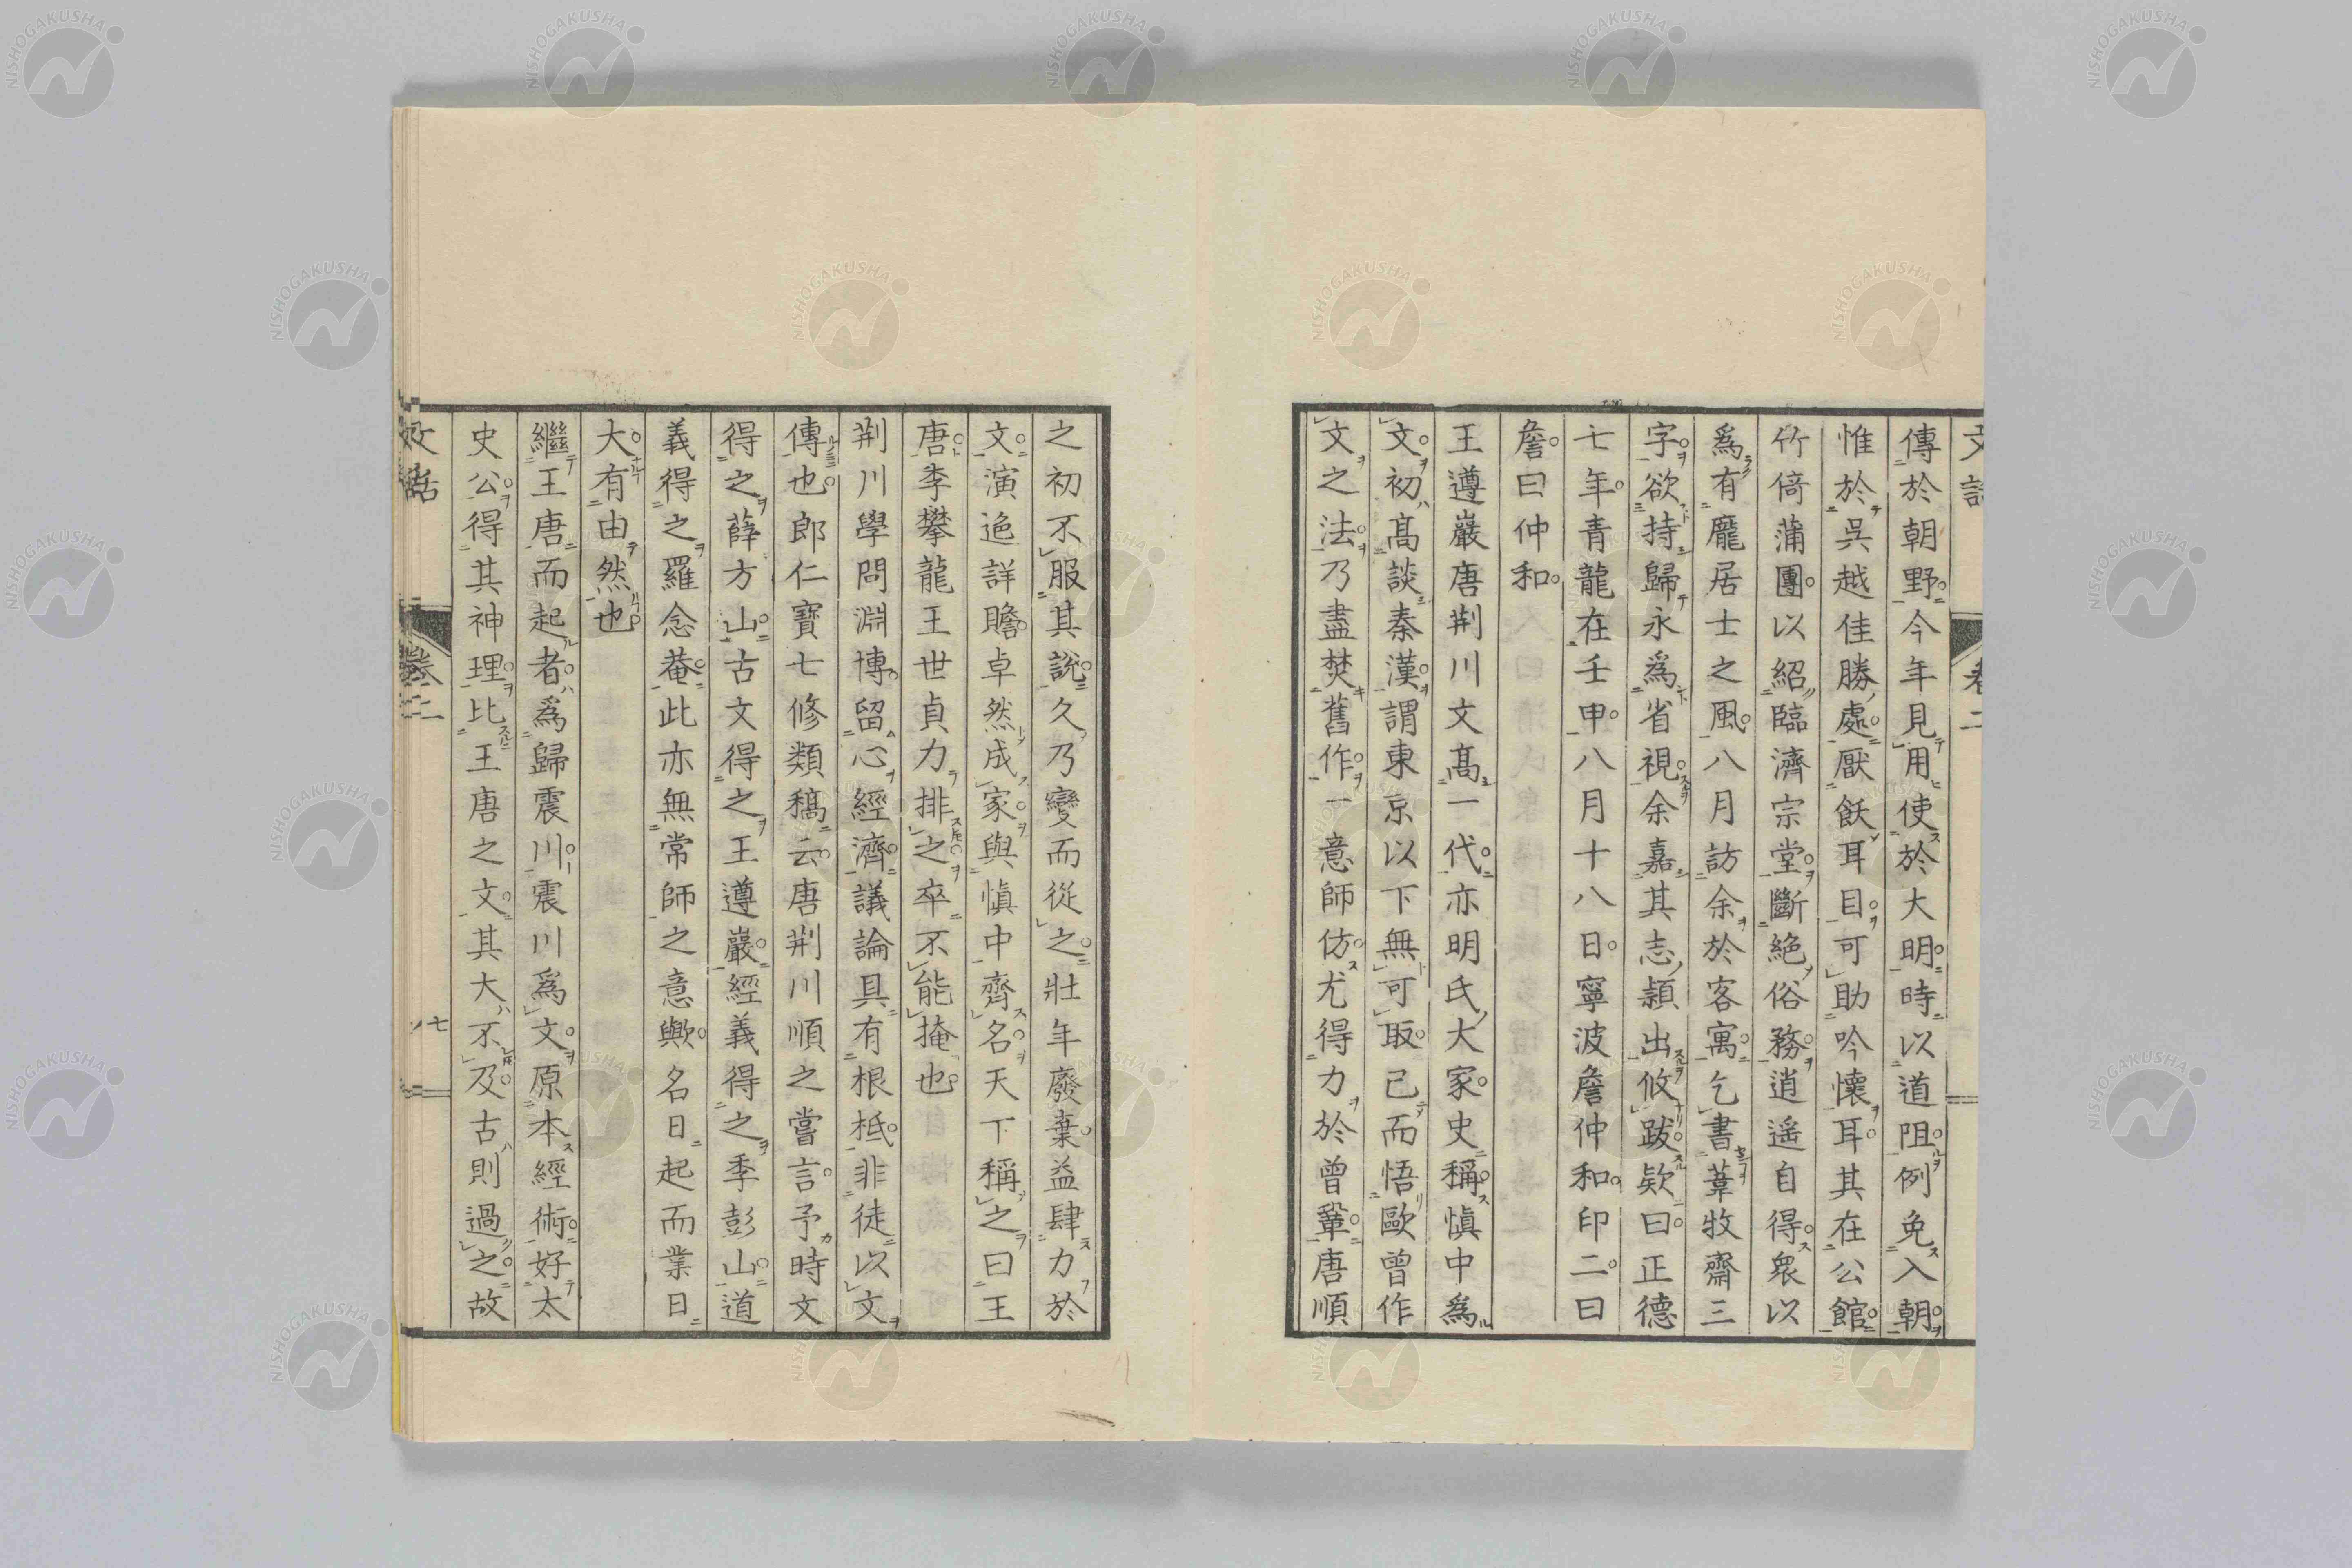 傳於朝野今年見用使於大明時以道阻例免入朝
惟於吳越佳勝處厭飫耳目可助吟懷耳其在公館
竹倚蒲團以紹臨濟宗堂斷絕俗務逍遙自得衆以
爲有龐居士之風八月訪余於客寓乞書葦牧齋三
字欲持歸永爲省視余嘉其志潁出攸跋欵曰正德
七年青龍在壬申八月十八日寧波詹仲和印二曰
詹曰仲和
王遵巖唐荆川文髙一代亦明氏大家史稱愼中爲
文初髙談秦漢謂東京以下無可取已而悟歐曾作
文之法乃盡焚舊作一意師仿尤得力於曾鞏唐順
之初不服其說久乃變而從之壯年廢棄益肆力於
文演迤詳贍卓然成家與愼中齊名天下稱之曰王
唐李攀龍王世貞力排之卒不能掩也
荆川學問淵博留心經濟議論具有根柢非徒以文
傳也郎仁寶七修類稿云唐荆川順之嘗言予時文
得之薛方山古文得之王遵巖經義得之季彭山道
義得之羅念菴此亦無常師之意歟名日起而業日
大有由然也
繼王唐而起者爲歸震川震川爲文原本經術好太
史公得其神理比王唐之文其大不及古則過之故
文話
卷二
七
NISHOGAKUSHA